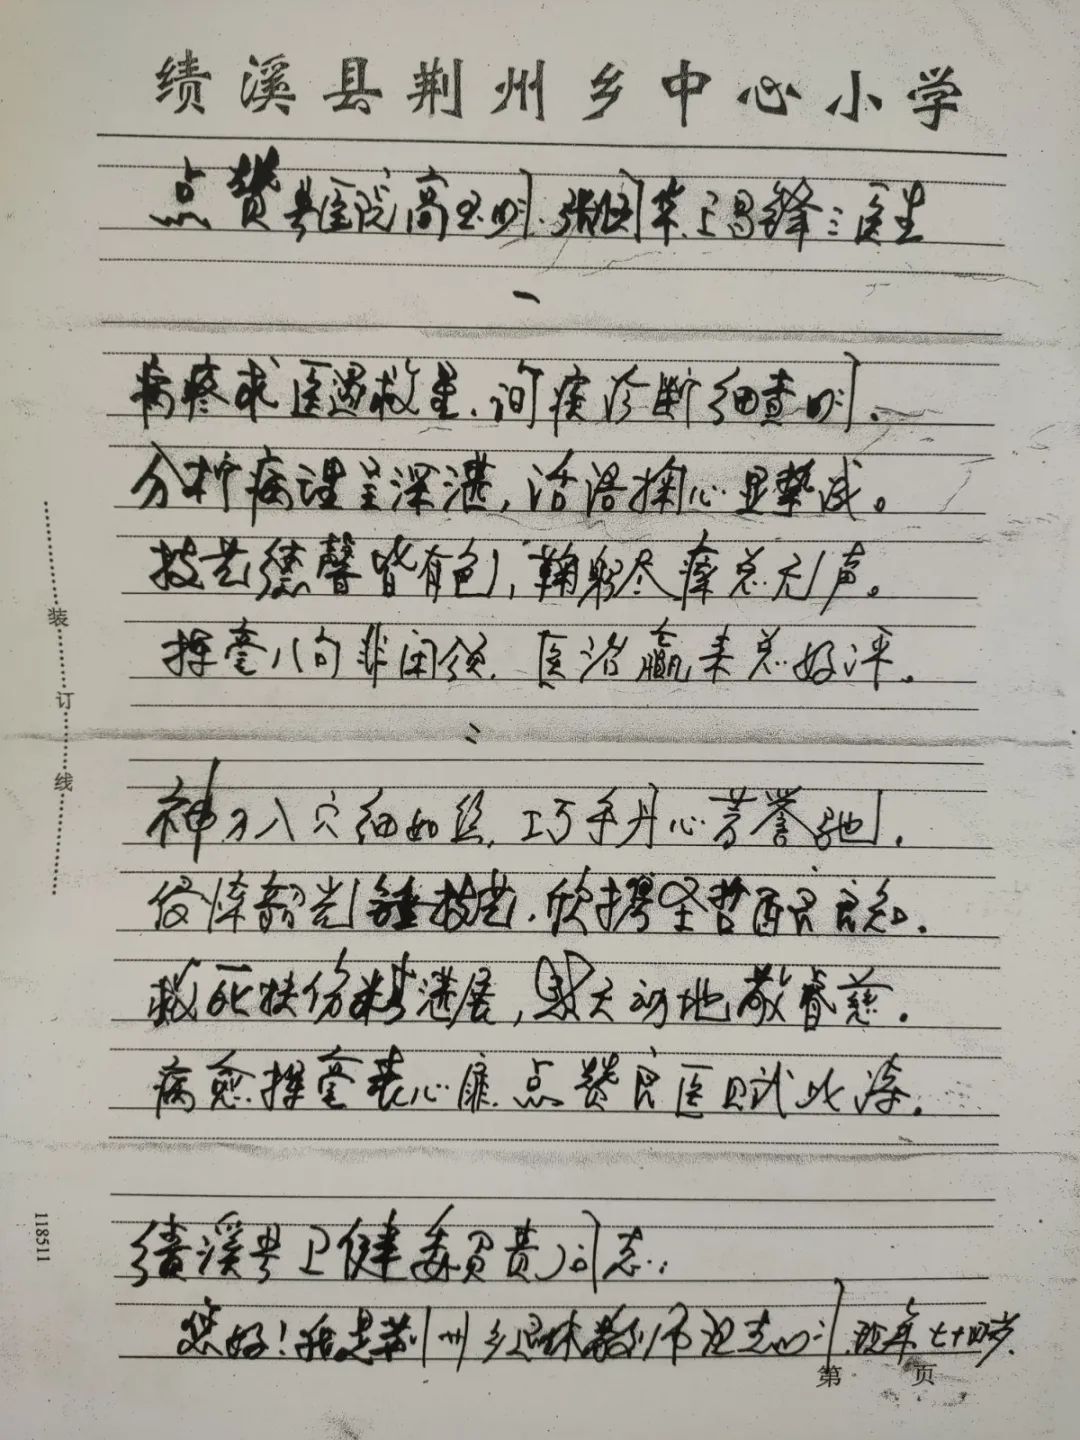 绩溪县荆州乡中心小学
点赞县医院高玉明、张国华、王昌锋三医生
一
病疼求医遇救星，询疾诊断细查明，
分析病理呈深湛，活语掏心显挚诚。
技艺德馨皆有色，鞠躬尽瘁总无声。
挥毫八句非闲颂，医治赢来总好评。
二
神刀入穴细如丝，巧手丹心芳誉驰，
韶光锤技艺，欣攜圣哲酿良知，
救死扶伤精湛展，天动地敬眷慈，
病愈挥毫表心扉，点赞良医赋此诗，
绩溪县卫健委负责同志：
您好！我是荆州乡退休教师 志明，现年七十四岁，
第 页
装
订
线
118511